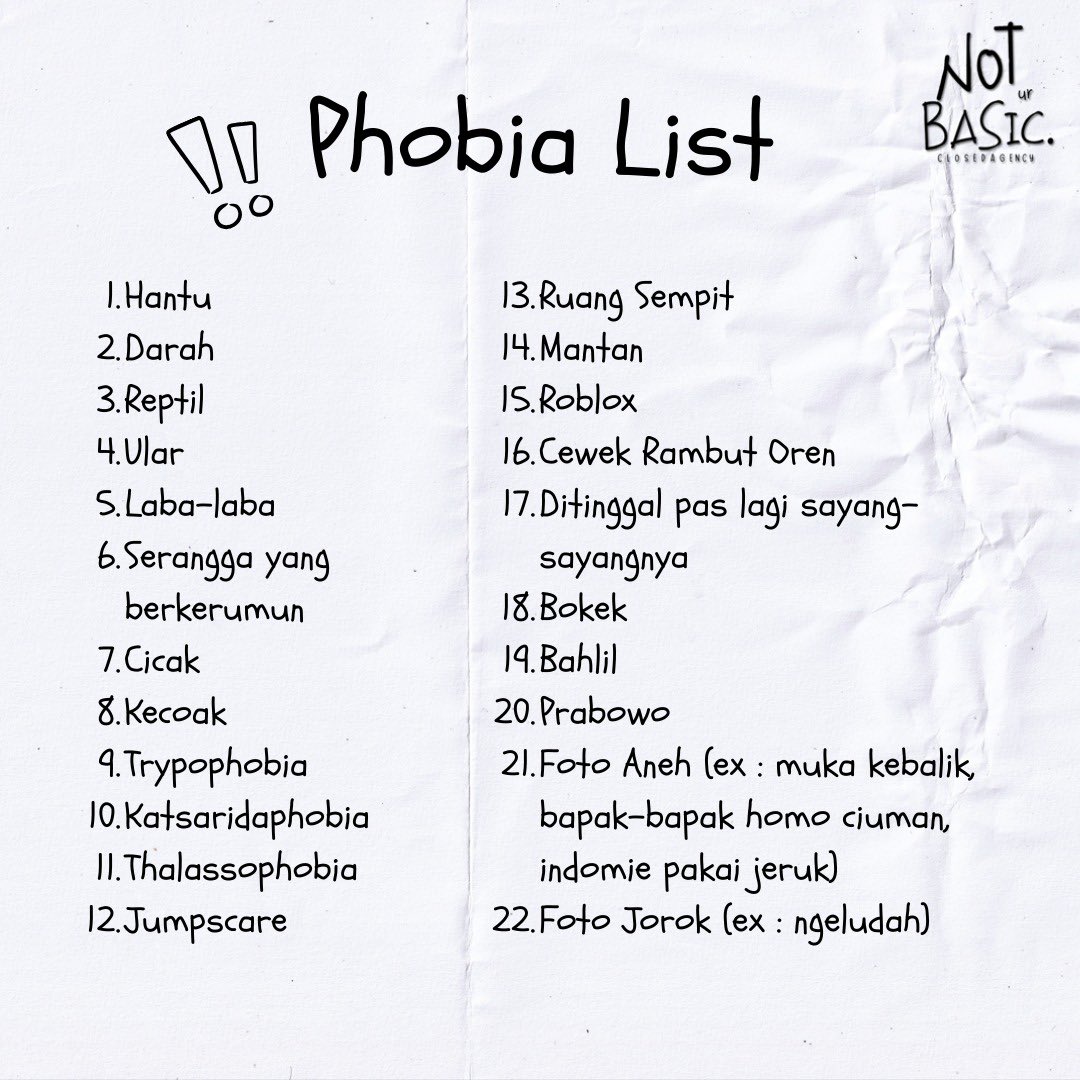 NOT
ur
BASIC.
CLOSEDAGENCY
!! Phobia List
1. Hantu
2. Darah
3. Reptil
4. Ular
5. Laba-laba
6. Serangga yang
berkerumun
7. Cicak
8. Kecoak
9. Trypophobia
10. Katsaridaphobia
11. Thalassophobia
12. Jumpscare
13. Ruang Sempit
14. Mantan
15. Roblox
16. Cewek Rambut Oren
17. Ditinggal pas lagi sayang-
sayangnya
18. Bokek
19. Bahlil
20. Prabowo
21. Foto Aneh (ex : muka kebalik,
bapak-bapak homo ciuman,
indomie pakai jeruk)
22. Foto Jorok (ex : ngeludah)